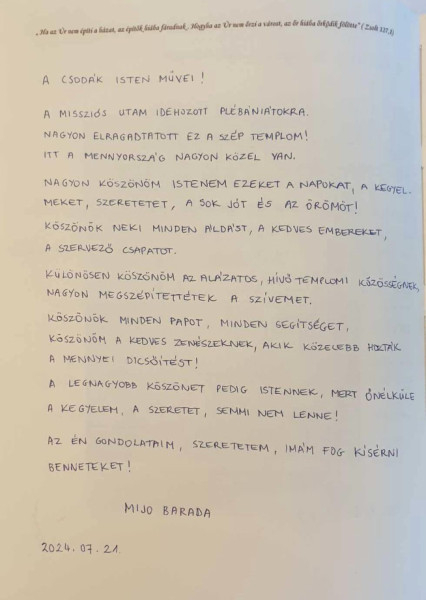 „Ha az Úr nem építi a házat, az építők hiába fáradnak. Hogyha az Úr nem őrzi a várost, az őr hiába őrködik fölötte” (Zsolt 127,1)
A CSODÁK ISTEN MŰVEI!
A MISSZIÓS UTAM IDEHOZOTT PLÉBÁNIÁTOKRA.
NAGYON ELRAGADTATOTT EZ A SZÉP TEMPLOM!
ITT A MENNYORSZÁG NAGYON KÖZEL VAN.
NAGYON KÖSZÖNÖM ISTENEM EZEKET A NAPOKAT, A KEGYEL-
MEKET, SZERETETET, A SOK JÓT ÉS AZ ÖRÖMÖT!
KÖSZÖNÖK NEKI MINDEN ÁLDÁST, A KEDVES EMBEREKET,
A SZERVEZŐ CSAPATOT.
KÜLÖNÖSEN KÖSZÖNÖM AZ ALÁZATOS, HÍVŐ TEMPLOMI KÖZÖSSÉGNEK,
NAGYON MEGSZÉPÍTETTÉTEK A SZÍVEMET.
KÖSZÖNÖK MINDEN PAPOT, MINDEN SEGÍTSÉGET,
KÖSZÖNÖM A KEDVES ZENÉSZEKNEK, AKIK KÖZELEBB HOZTÁK
A MENNYEI DICSŐÍTÉST!
A LEGNAGYOBB KÖSZÖNET PEDIG ISTENNEK, MERT ŐNÉLKÜLE
A KEGYELEM, A SZERETET, SEMMI NEM LENNE!
AZ ÉN GONDOLATAIM, SZERETETEM, IMÁM FOG KÍSÉRNI
BENNETEKET!
MIJO BARADA
2024.07.21.